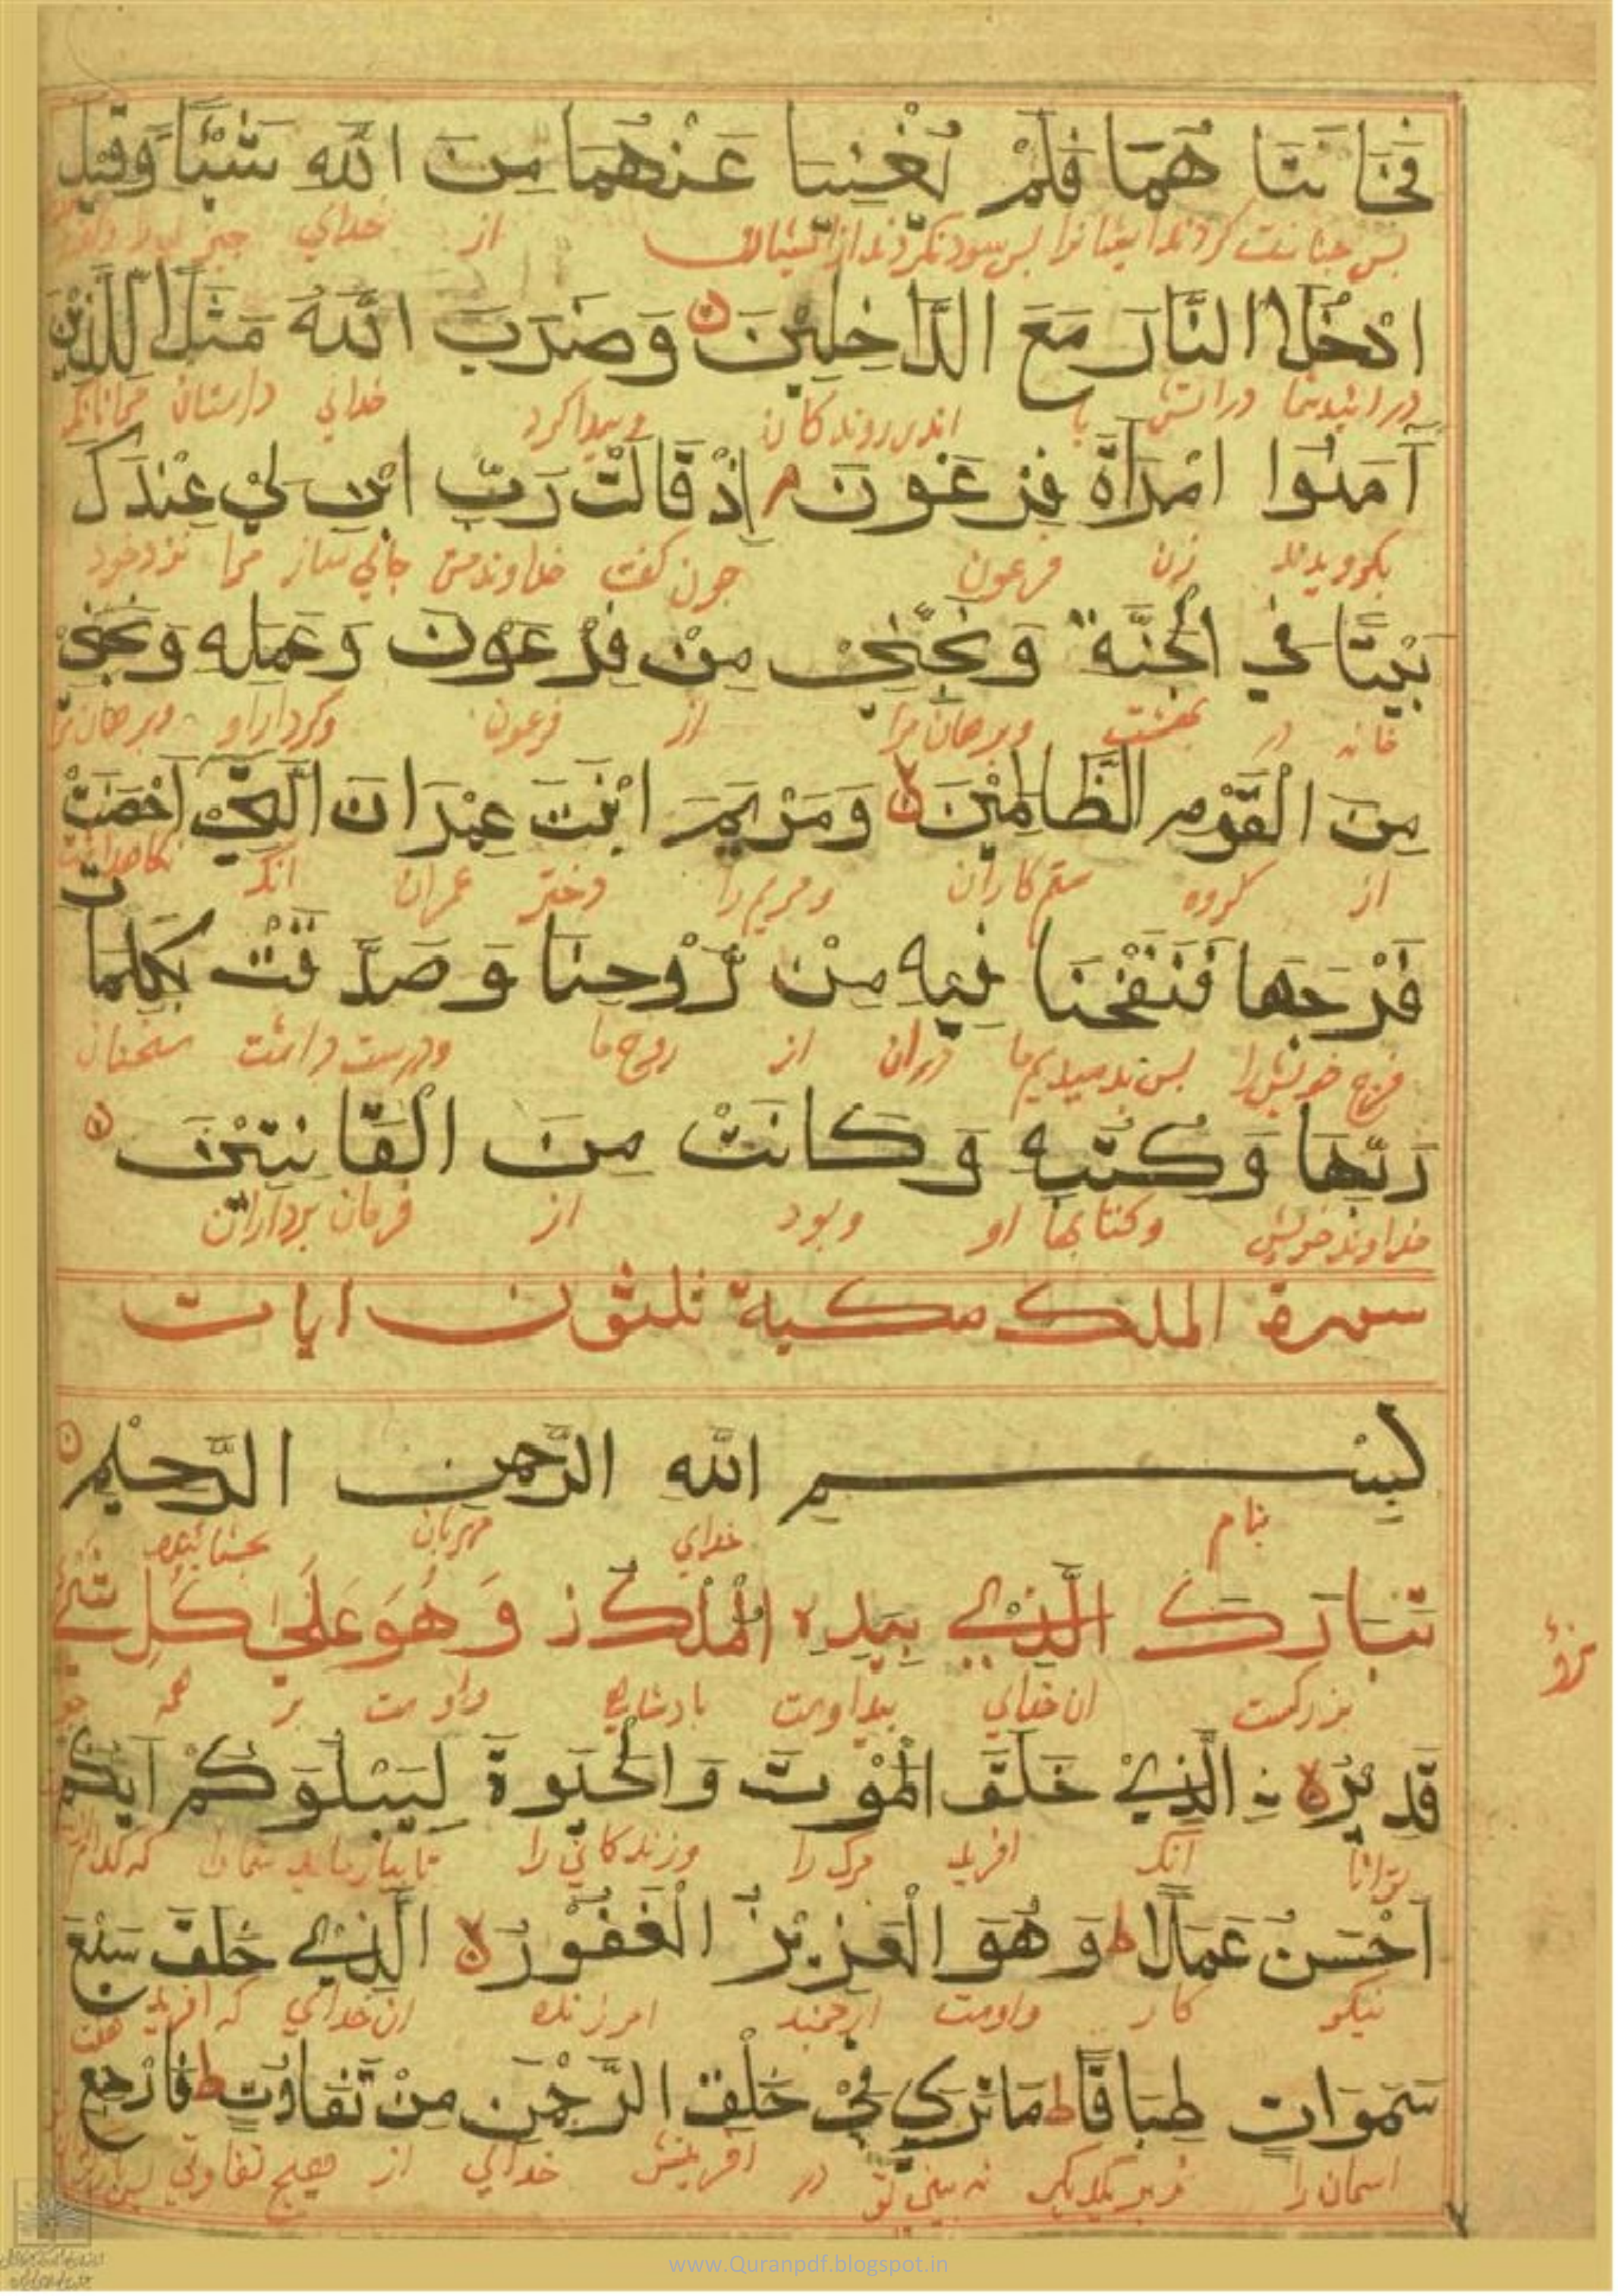 فَخَانَتَا هُمَا فَلَمْ يُغْنِيَا عَنْهُمَا مِنَ اللّٰهِ شَيْئًا وَقِيْلَ
پس خیانت کردند ایشانرا پس سود نکردند از ایشان از خدای چیز
ادْخُلَا النَّارَ مَعَ الدَّاخِلِيْنَ وَضَرَبَ اللّٰهُ مَثَلًا لِلَّذِيْنَ
در ایید شما در اتش با اندر روندکان وپیدا کرد خدای داستان مرانانکه
آمَنُوا امْرَأَةَ فِرْعَوْنَ م اِذْ قَالَتْ رَبِّ ابْنِ لِيْ عِنْدَكَ
بکرویدند زن فرعون چون کفت خداوند من جای ساز مرا نزد خود
بَيْتًا فِي الْجَنَّةِ وَنَجِّنِيْ مِنْ فِرْعَوْنَ وَعَمَلِهِ وَنَجِّنِيْ
خانه در بهشت وبرهان مرا از فرعون وکردار او وبرهان مرا
مِنَ الْقَوْمِ الظَّالِمِيْنَ وَمَرْيَمَ ابْنَتَ عِمْرَانَ الَّتِيْ اَحْصَنَتْ
از کروه ستم کاران ومریم را دختر عمران انکه نکاهداشت
فَرْجَهَا فَنَفَخْنَا فِيهِ مِنْ رُّوْحِنَا وَصَدَّقَتْ بِكَلِمَاتِ
فرج خویش را پس بدمیدیم ما دران از روح ما ودرست داشت سخنان
رَبِّهَا وَكُتُبِهِ وَكَانَتْ مِنَ الْقَانِتِيْنَ
خداوند خویش وکتابها او وبود از فرمان برداران
سورة الملك مكية ثلثون ايات
بِسْمِ اللّٰهِ الرَّحْمٰنِ الرَّحِيْمِ
بنام خدای مهربان بخشاینده
تَبَارَكَ الَّذِيْ بِيَدِهِ الْمُلْكُ ز وَهُوَ عَلٰى كُلِّ شَيْءٍ
بزرکست ان خدای بید اوست بادشاهی واوست بر همه
قَدِيْرٌ لا نِ الَّذِيْ خَلَقَ الْمَوْتَ وَالْحَيٰوةَ لِيَبْلُوَكُمْ اَيُّكُمْ
توانا انکه افرید مرک را وزندکانی را تا بیازماید شما را که کدام
اَحْسَنُ عَمَلًا ط وَهُوَ الْعَزِيْزُ الْغَفُوْرُ لا الَّذِيْ خَلَقَ سَبْعَ
نیکو کار واوست ارجمند امرزنده ان خدای که افرید هفت
سَمٰوَاتٍ طِبَاقًا ط مَا تَرٰي فِيْ خَلْقِ الرَّحْمٰنِ مِنْ تَفَاوُتٍ ط فَارْجِعِ
اسمان را بر یکدیکر نه بینی تو در افرینش خدای از هیچ تفاوتی
www.Quranpdf.blogspot.in